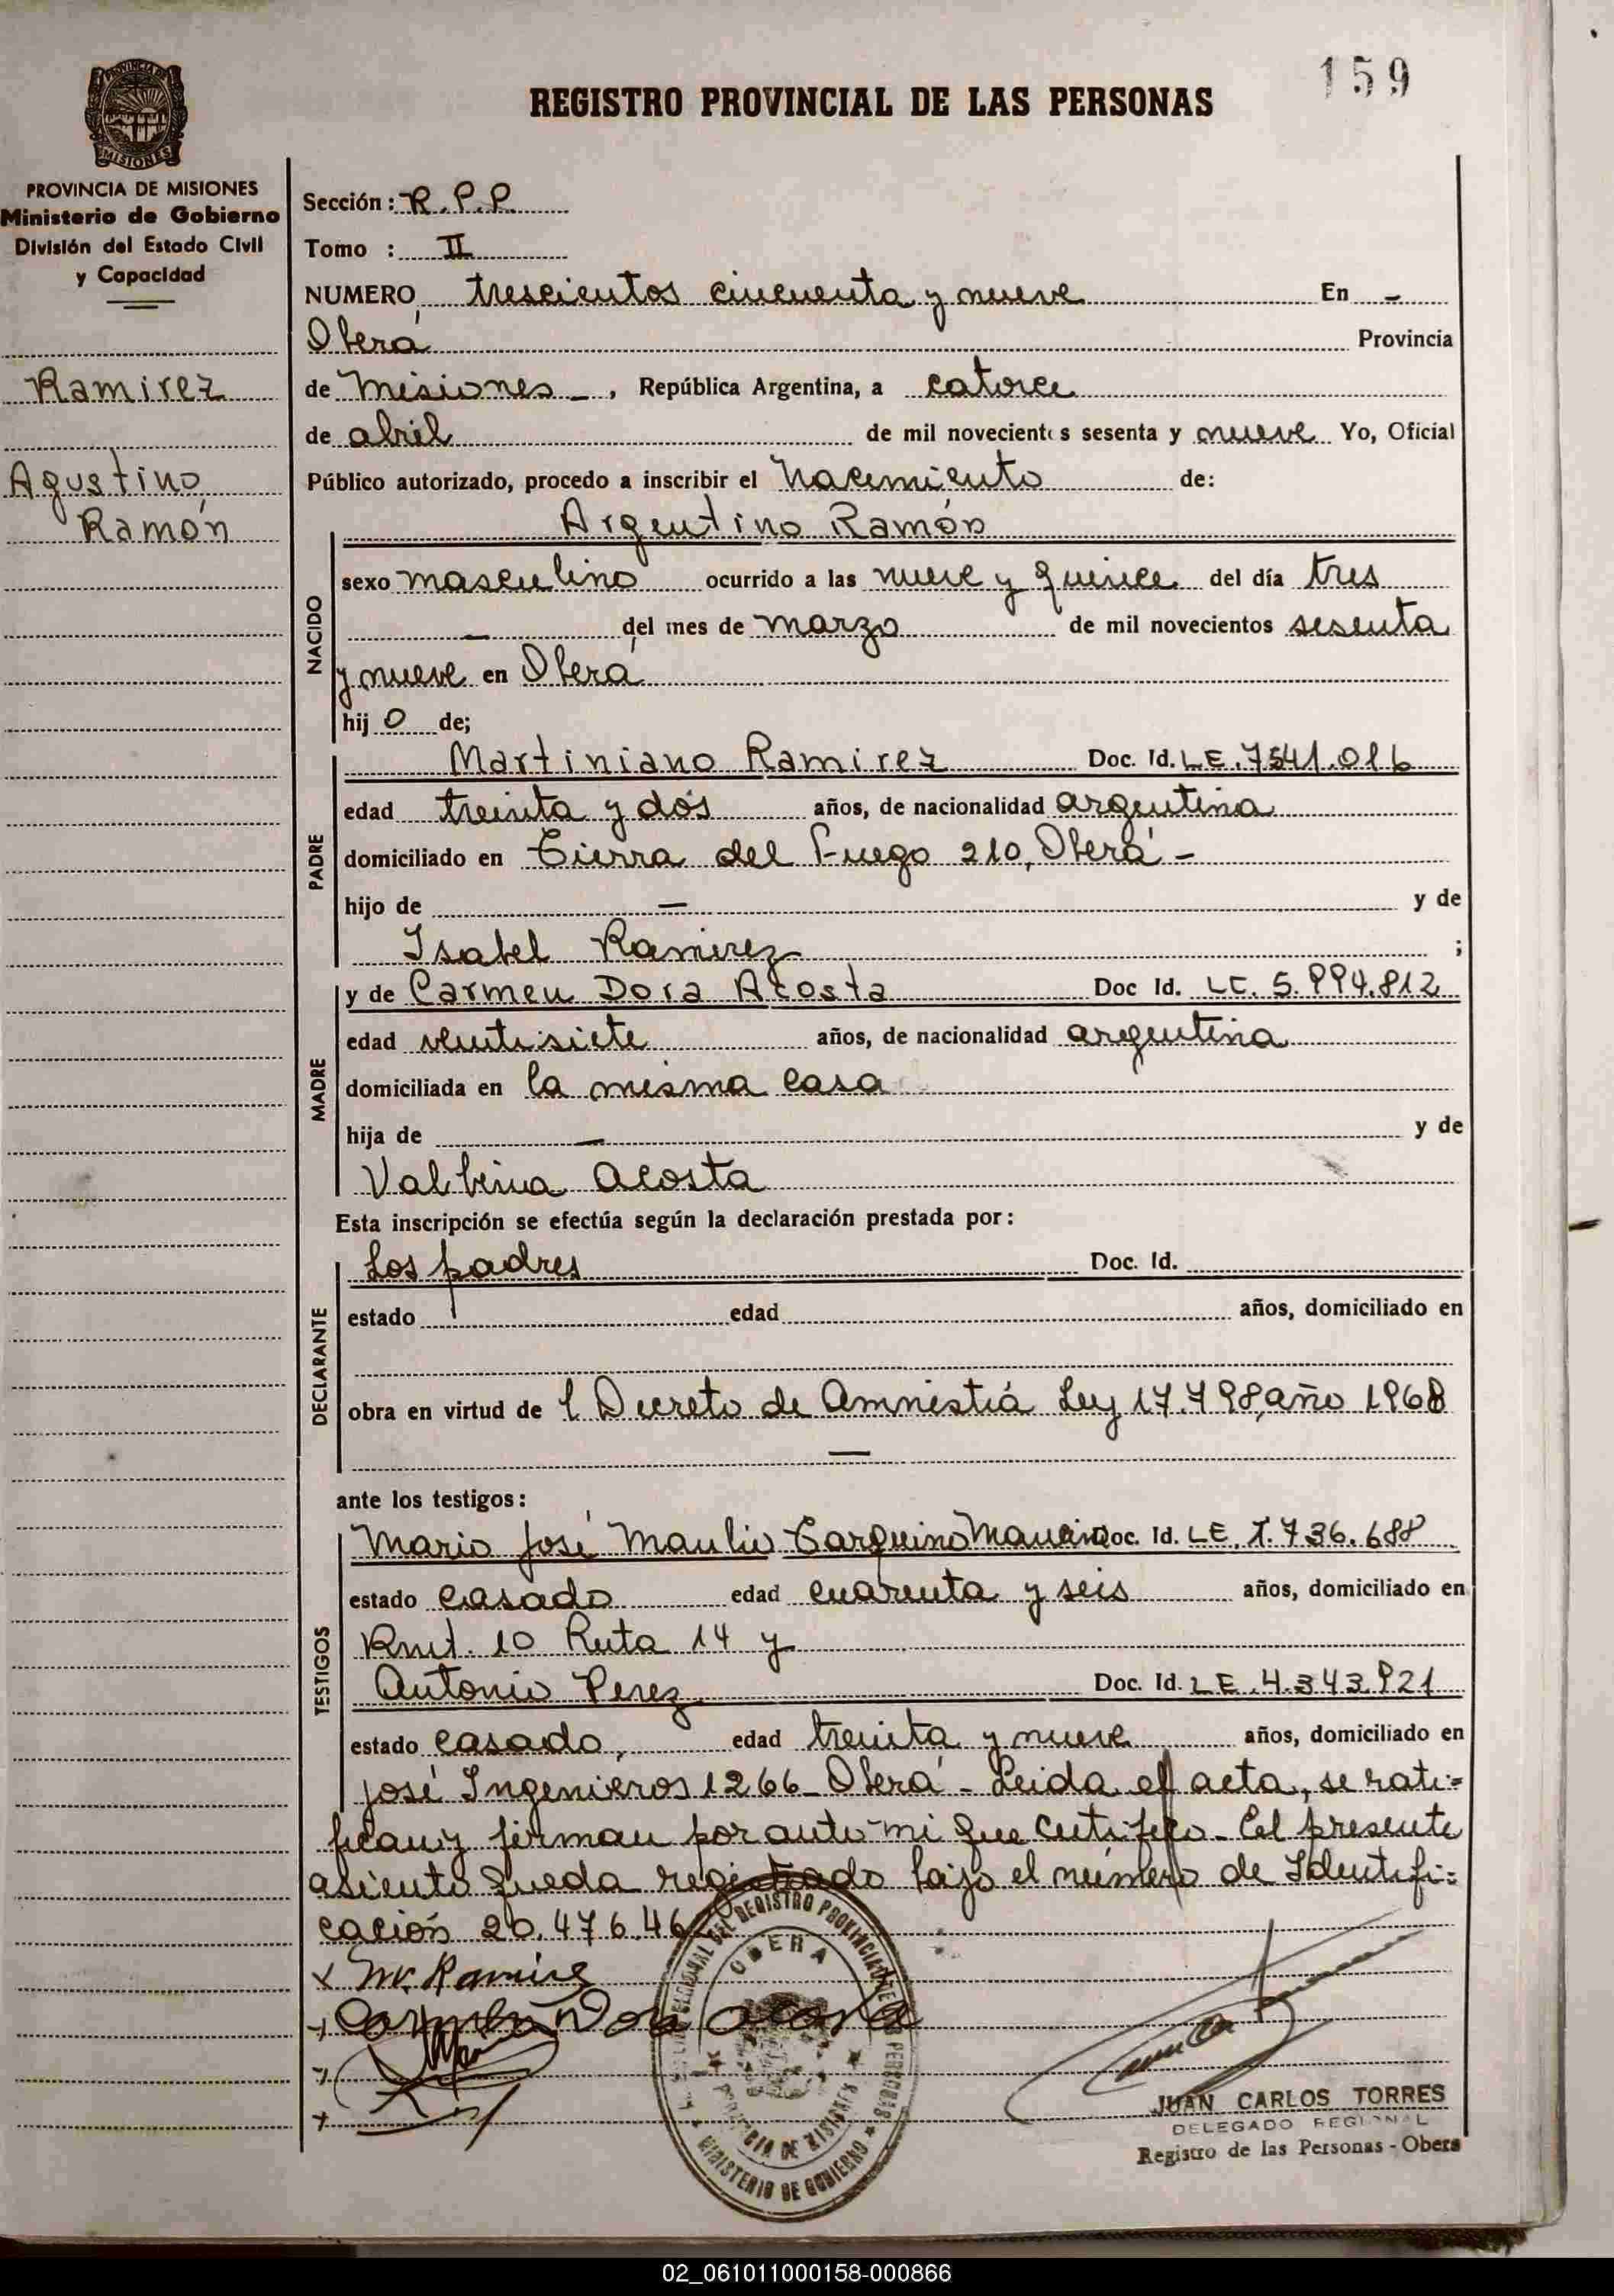 159
REGISTRO PROVINCIAL DE LAS PERSONAS
PROVINCIA DE MISIONES
PROVINCIA DE MISIONES
Ministerio de Gobierno
División del Estado Civil
y Capacidad
Ramirez
Agustino
Ramón
Sección: R.P.P.
Tomo : II
NUMERO trescientos cincuenta y nueve En -
Oberá Provincia
de Misiones -, República Argentina, a catorce
de abril de mil novecientos sesenta y nueve Yo, Oficial
Público autorizado, procedo a inscribir el Nacimiento de:
NACIDO
Argentino Ramón
sexo masculino ocurrido a las nueve y quince del día tres
- del mes de marzo de mil novecientos sesenta
y nueve en Oberá
hij o de;
PADRE
Martiniano Ramirez Doc. Id. LE.7541.016
edad treinta y dos años, de nacionalidad argentina
domiciliado en Tierra del Fuego 210, Oberá -
hijo de - y de
Isabel Ramirez ;
MADRE
y de Carmen Dora Acosta Doc Id. LC. 5.994.812
edad veintisiete años, de nacionalidad argentina
domiciliada en la misma casa
hija de - y de
Valbina Acosta
Esta inscripción se efectúa según la declaración prestada por:
DECLARANTE
Los padres Doc. Id.
estado edad años, domiciliado en
obra en virtud de l Decreto de Amnistiá Ley 17.798, año 1968
—
ante los testigos:
TESTIGOS
Mario José Manlio Tarquino Doc. Id. LE. 7.736.688
estado casado edad cuarenta y seis años, domiciliado en
Kmt. 10 Ruta 14 y
Antonio Perez Doc. Id. LE.4.343.921
estado casado, edad treinta y nueve años, domiciliado en
José Ingenieros 1266 - Oberá - Leida el acta, se rati=
fican y firman por ante mi que certifico - El presente
asiento queda registrado bajo el número de Identifi=
cación 20.476.46
x M. Ramirez
Carmen Dora Acosta
OBERA
PROVINCIA DE MISIONES
MINISTERIO DE GOBIERNO
JUAN CARLOS TORRES
DELEGADO REGIONAL
Registro de las Personas - Obera
02_061011000158-000866